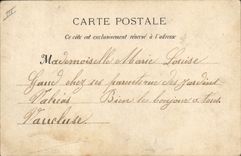 CARTE POSTALE
Ce côté est exclusivement réservé à l'adresse
Mademoiselle Marie Louise
chez ses parents
Valréas Bien le bonjour a tous
Vaucluse